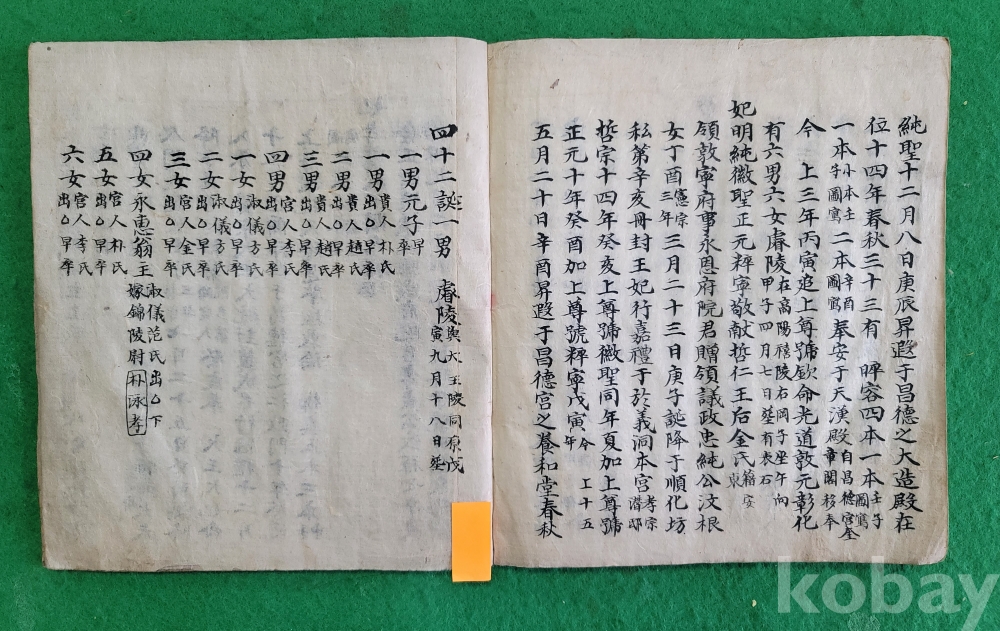 純聖十二月八日庚辰昇遐于昌德之大造殿在
位十四年春秋三十三有 睟容四本一本壬子圖寫
一本小本壬子圖寫二本辛酉圖寫奉安于天漢殿自昌德宮奎章閣移奉
今 上三年丙寅追上尊號欽命光道敦元彰化
有六男六女睿陵在高陽禧陵右岡子坐午向甲子四月七日葬有表石
妃明純徽聖正元粹寧敬献哲仁王后金氏籍安東
領敦寧府事永恩府院君贈領議政忠純公汶根
女丁酉憲宗三年三月二十三日庚子誕降于順化坊
私第辛亥冊封王妃行嘉禮于於義洞本宮孝宗潛邸
哲宗十四年癸亥上尊號徽聖同年夏加上尊號
正元十年癸酉加上尊號粹寧戊寅今上十五年
五月二十日辛酉昇遐于昌德宮之養和堂春秋
四十二誕一男 睿陵與大王陵同原戊寅九月十八日葬
一男元子早卒
一男貴人朴氏出○早卒
二男貴人趙氏出○早卒
三男貴人趙氏出○早卒
四男宮人李氏出○早卒
一女淑儀方氏出○早卒
二女淑儀方氏出○早卒
三女宮人金氏出○早卒
四女永惠翁主淑儀范氏出○下嫁錦陵尉朴泳孝
五女宮人朴氏出○早卒
六女宮人李氏出○早卒
kobay